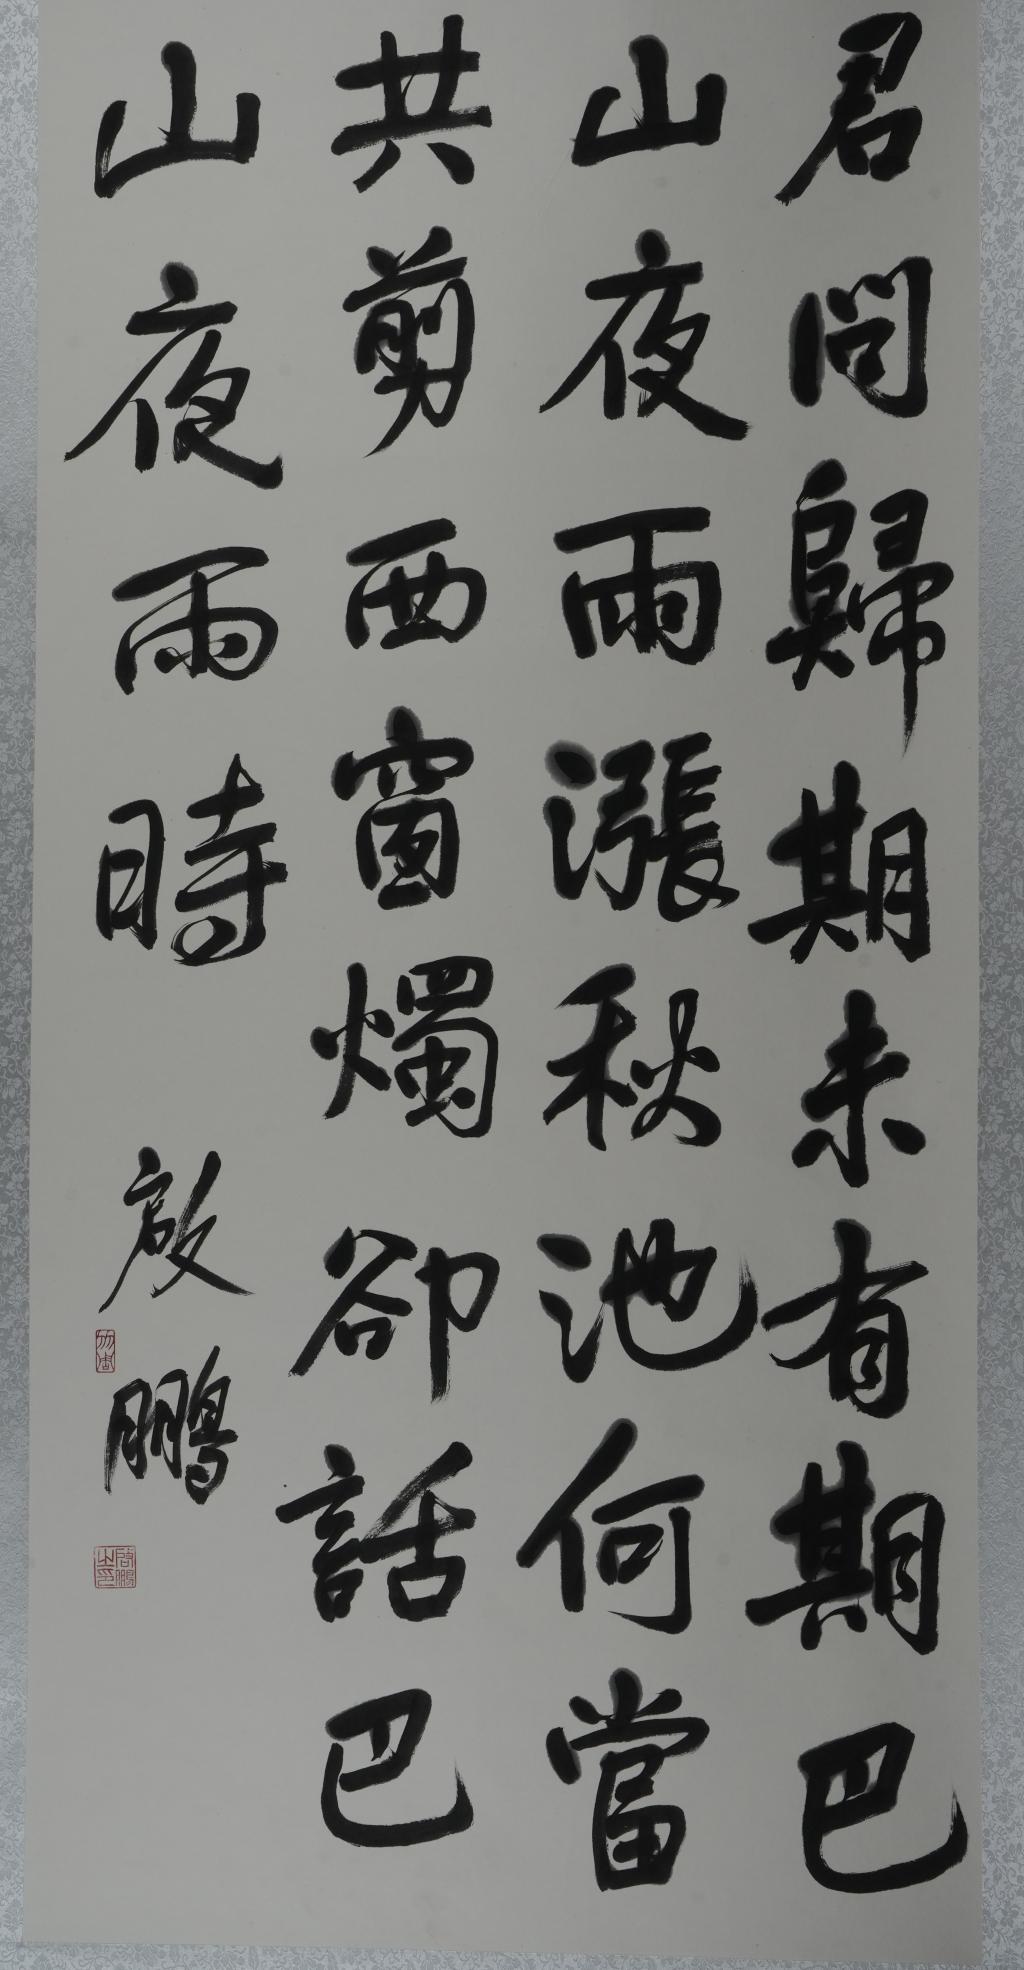 君問歸期未有期巴
山夜雨漲秋池何當
共剪西窗燭卻話巴
山夜雨時
啟鵬
啟鵬之印